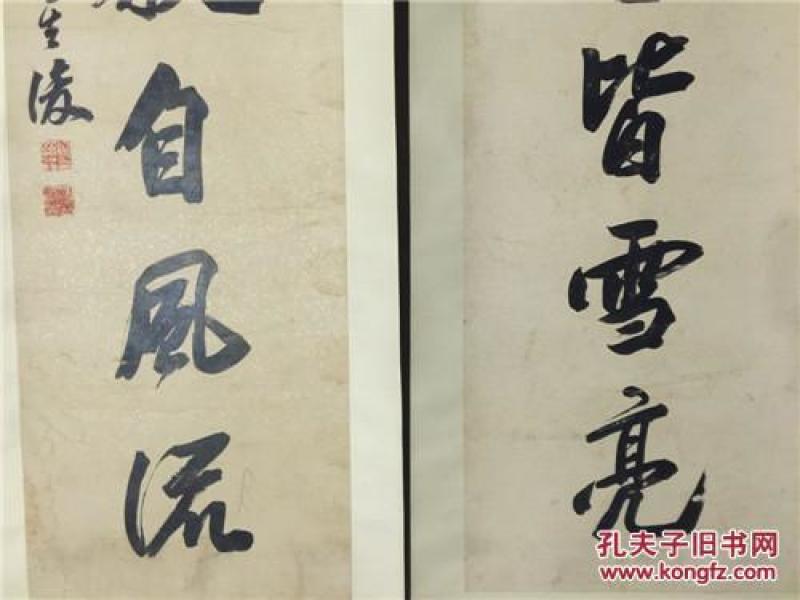 皆雪亮
自風流
生浚
孔夫子旧书网
www.kongfz.com